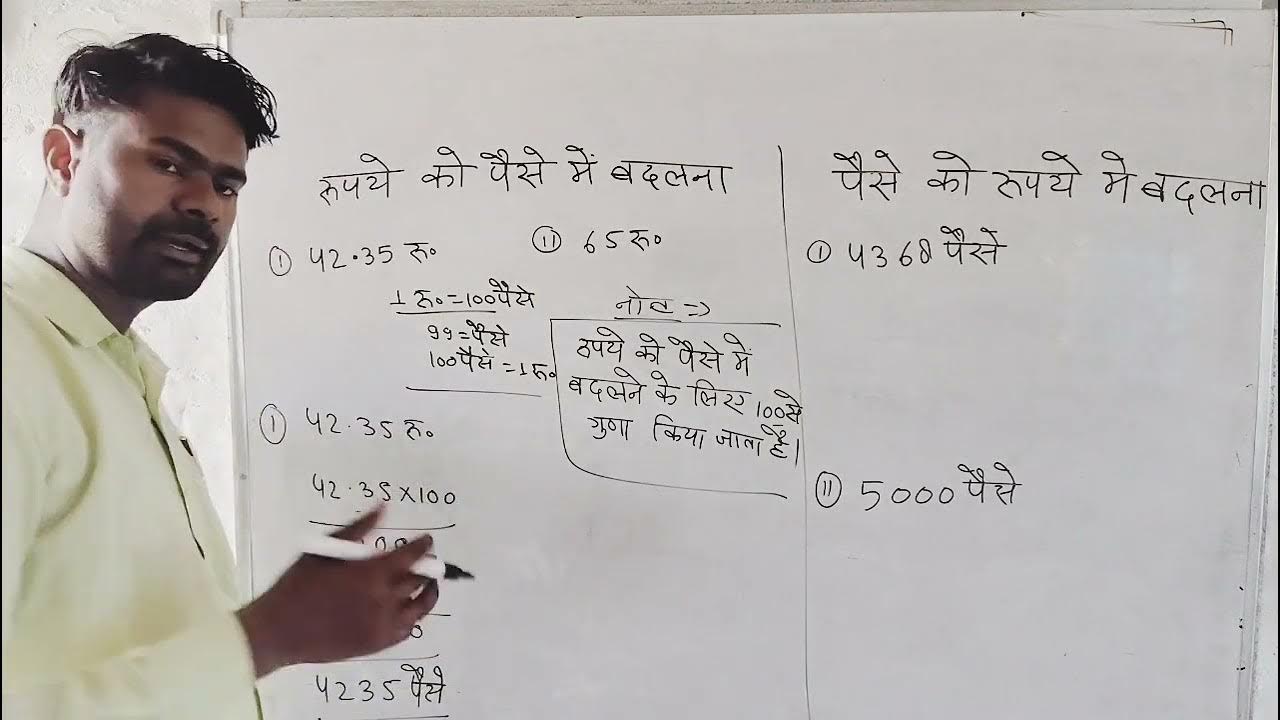 रुपये को पैसे में बदलना
① 42.35 रु०
⑪ 65 रु०
1 रु० = 100 पैसे
99 = पैसे
100 पैसे = 1 रु०
नोट ⇒
रुपये को पैसे में
बदलने के लिए 100 से
गुणा किया जाता है।
① 42.35 रु०
42.35 x 100
4235 पैसे
पैसे को रुपये मे बदलना
① 4368 पैसे
⑪ 5000 पैसे